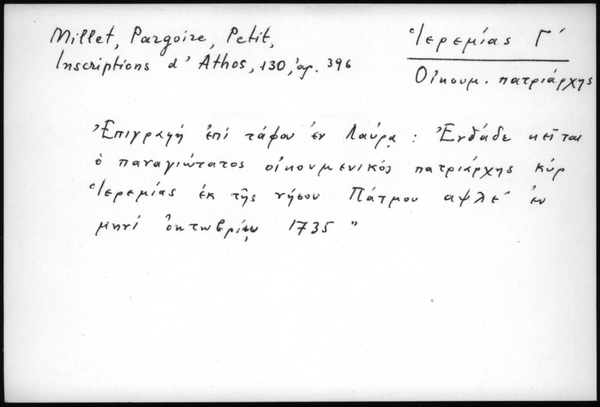 Millet, Pargoire, Petit,
Inscriptions d'Athos, 130, ἀρ. 396
Ἱερεμίας Γ΄
Οἰκουμ. πατριάρχης
Ἐπιγραφή ἐπί τάφου ἐν Λαύρᾳ : Ἐνθάδε κεῖται
ὁ παναγιώτατος οἰκουμενικός πατριάρχης κύρ
Ἱερεμίας ἐκ τῆς νήσου Πάτμου αψλε΄ ἐν
μηνί ὀκτωβρίῳ 1735 "